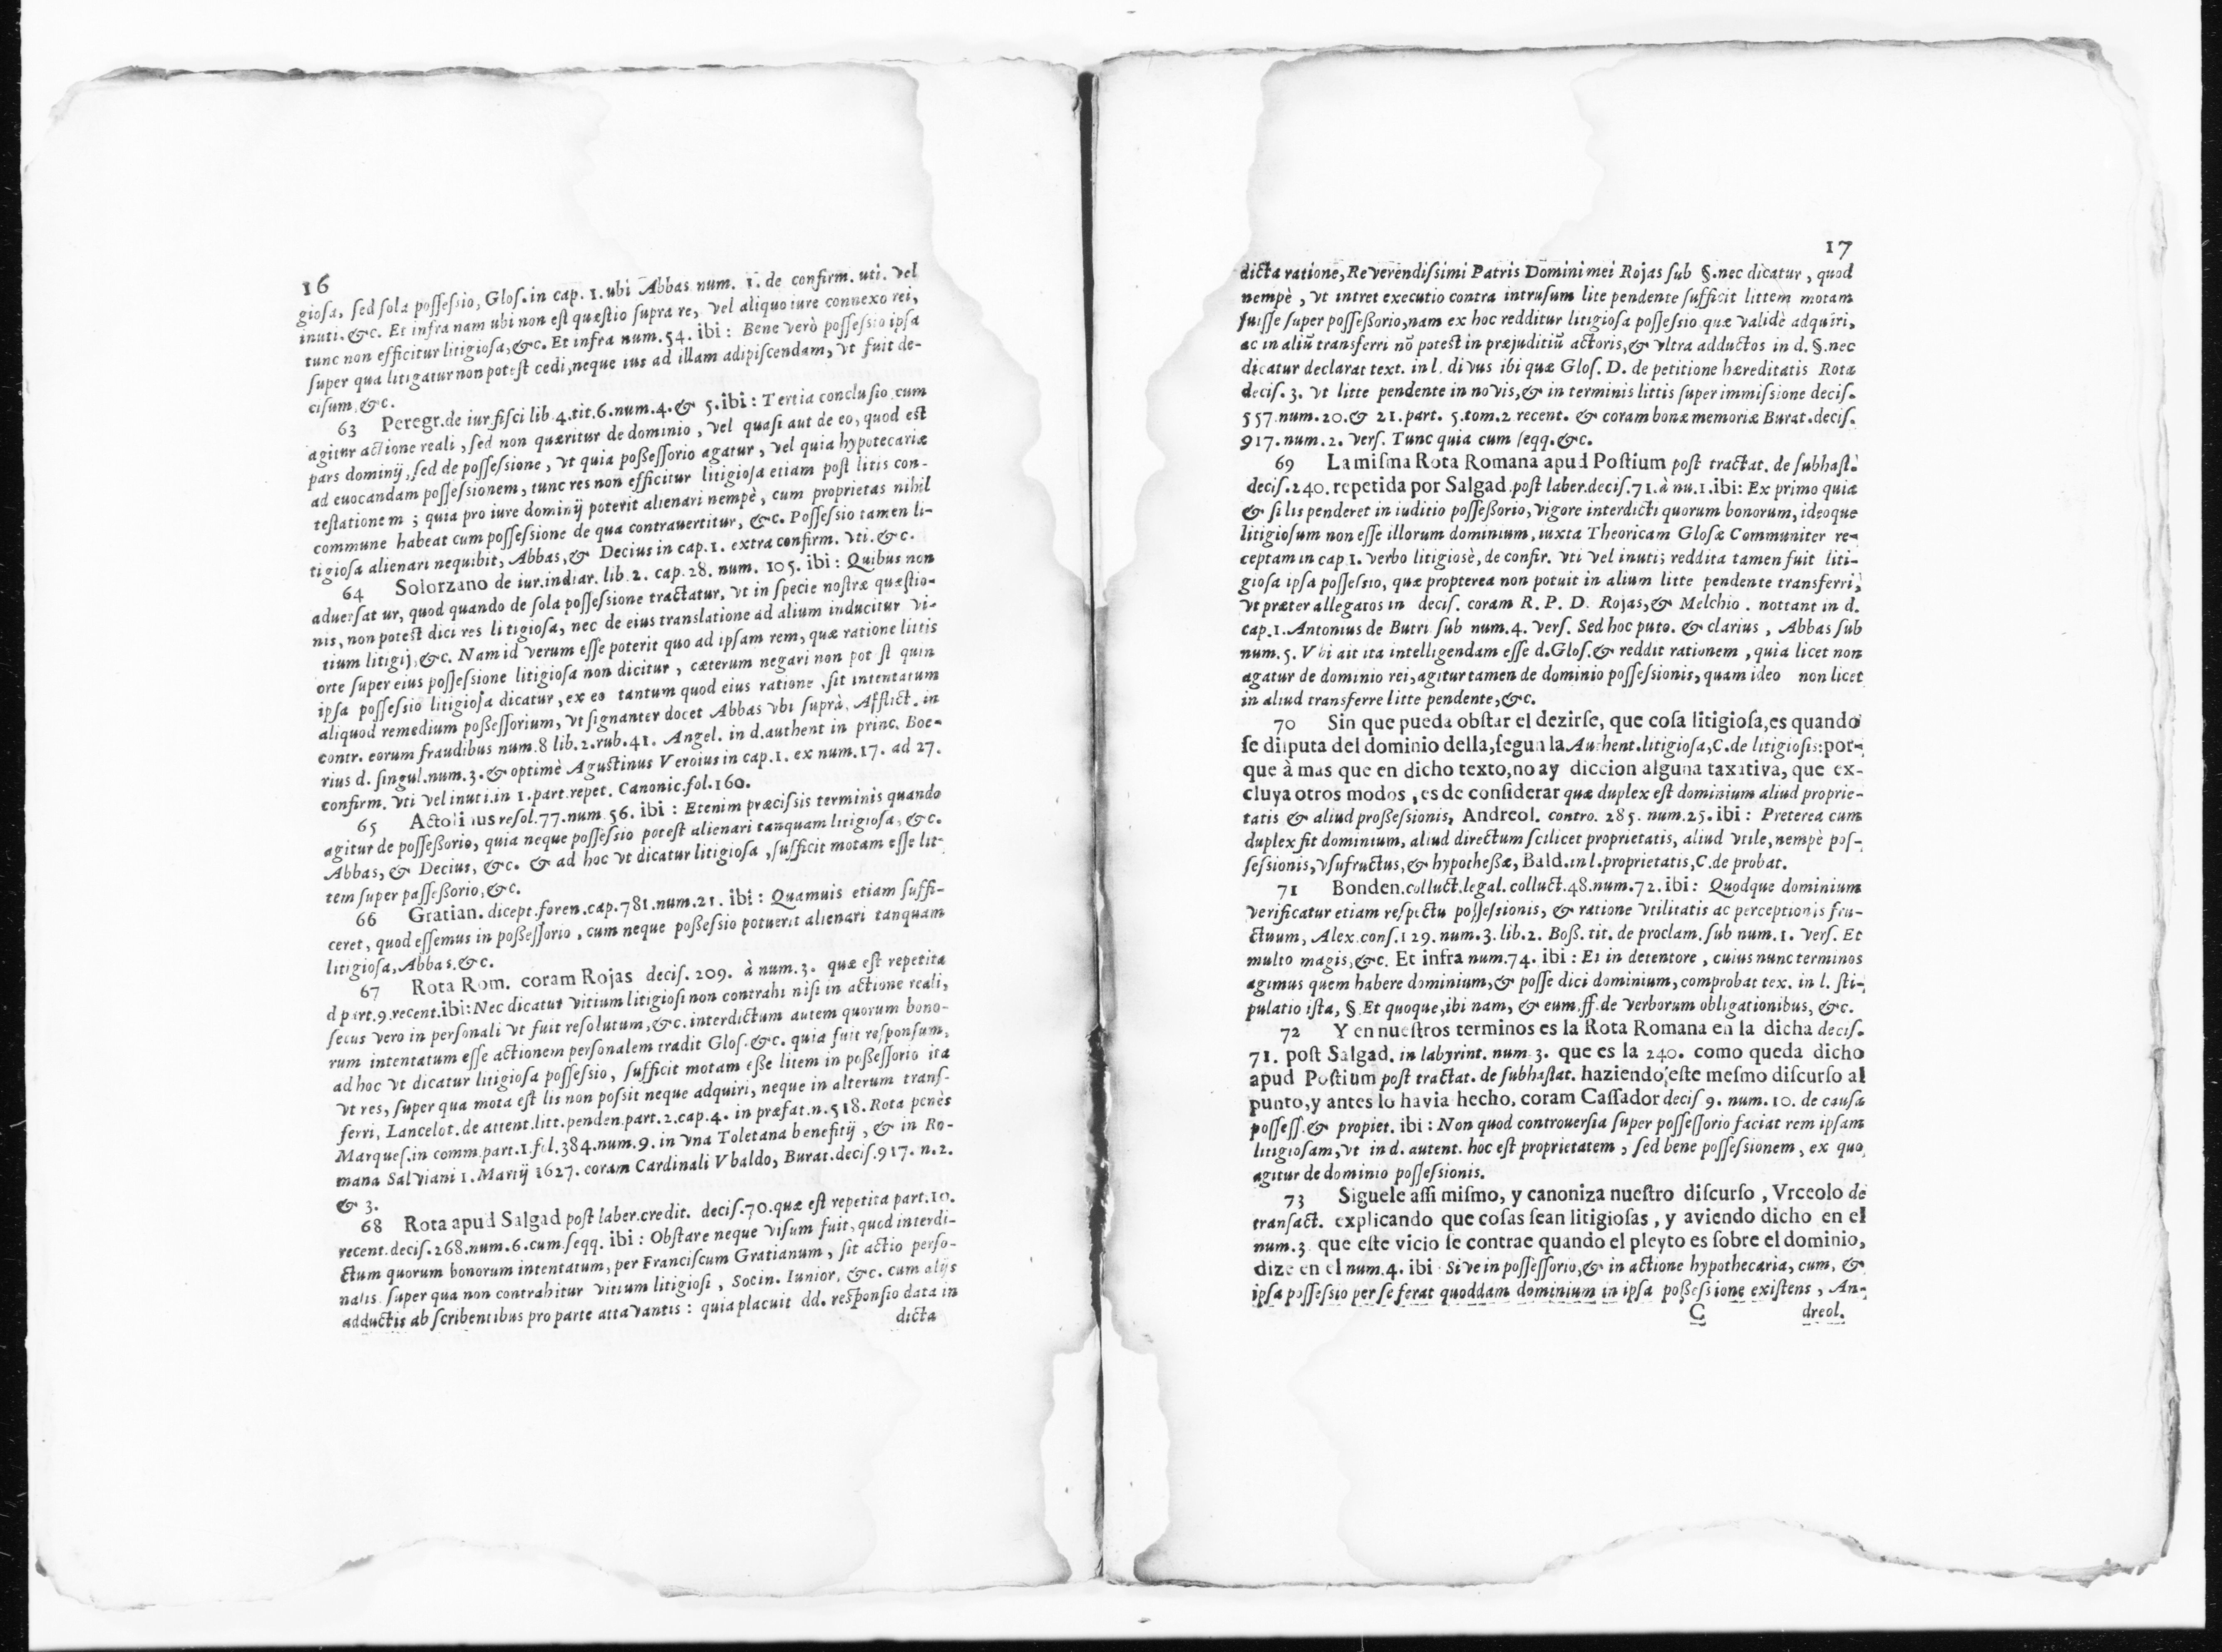 16
giosa, sed sola possessio, Glos. in cap. 1. ubi Abbas num. 1. de confirm. uti. vel
inuti. &c. Et infra nam ubi non est quæstio supra re, vel aliquo iure connexo rei,
tunc non efficitur litigiosa, &c. Et infra num. 54. ibi: Bene verò possessio ipsa
super qua litigatur non potest cedi, neque ius ad illam adipiscendam, vt fuit de-
cisum, &c.
63 Peregr. de iur. fisci lib. 4. tit. 6. num. 4. & 5. ibi: Tertia conclusio cum
agitur actione reali, sed non quæritur de dominio, vel quasi aut de eo, quod est
pars dominij, sed de possessione, vt quia possessorio agatur, vel quia hypotecariæ
ad euocandam possessionem, tunc res non efficitur litigiosa etiam post litis con-
testationem; quia pro iure dominij poterit alienari nempè, cum proprietas nihil
commune habeat cum possessione de qua contrauertitur, &c. Possessio tamen li-
tigiosa alienari nequibit, Abbas, & Decius in cap. 1. extra confirm. vti. &c.
64 Solorzano de iur. indiar. lib. 2. cap. 28. num. 105. ibi: Quibus non
aduersatur, quod quando de sola possessione tractatur, vt in specie nostræ quæstio-
nis, non potest dici res litigiosa, nec de eius translatione ad alium inducitur vi-
tium litigij, &c. Nam id verum esse poterit quo ad ipsam rem, quæ ratione littis
orte super eius possessione litigiosa non dicitur, cæterum negari non pot st quin
ipsa possessio litigiosa dicatur, ex eo tantum quod eius ratione, sit intentatum
aliquod remedium possessorium, vt signanter docet Abbas vbi suprà, Afflict. in
contr. eorum fraudibus num. 8 lib. 2. rub. 41. Angel. in d. authent in princ. Boe-
rius d. singul. num. 3. & optimè Agustinus Veroius in cap. 1. ex num. 17. ad 27.
confirm. vti vel inuti. in 1. part. repet. Canonic. fol. 160.
65 Actolinus resol. 77. num. 56. ibi: Etenim præcissis terminis quando
agitur de possessorio, quia neque possessio potest alienari tanquam litigiosa, &c.
Abbas, & Decius, &c. & ad hoc vt dicatur litigiosa, sufficit motam esse lit-
tem super passessorio, &c.
66 Gratian. dicept. foren. cap. 781. num. 21. ibi: Quamuis etiam suffi-
ceret, quod essemus in possessorio, cum neque possessio potuerit alienari tanquam
litigiosa, Abbas. &c.
67 Rota Rom. coram Rojas decis. 209. à num. 3. quæ est repetita
d part. 9. recent. ibi: Nec dicatur vitium litigiosi non contrahi nisi in actione reali,
secus vero in personali vt fuit resolutum, &c. interdictum autem quorum bono-
rum intentatum esse actionem personalem tradit Glos. &c. quia fuit responsum,
ad hoc vt dicatur litigiosa possessio, sufficit motam esse litem in possessorio ita
vt res, super qua mota est lis non possit neque adquiri, neque in alterum trans-
ferri, Lancelot. de attent. litt. penden. part. 2. cap. 4. in præfat. n. 518. Rota penès
Marques. in comm. part. 1. fol. 384. num. 9. in vna Toletana benefitij, & in Ro-
mana Salviani 1. Martij 1627. coram Cardinali Vbaldo, Burat. decis. 917. n. 2.
& 3.
68 Rota apud Salgad post laber. credit. decis. 70. quæ est repetita part. 10.
recent. decis. 268. num. 6. cum seqq. ibi: Obstare neque visum fuit, quod interdi-
ctum quorum bonorum intentatum, per Franciscum Gratianum, sit actio perso-
nalis super qua non contrahitur vitium litigiosi, Socin. Iunior, &c. cum alijs
adductis ab scribentibus pro parte attavantis: quia placuit dd. responsio data in
dicta
17
dicta ratione, Reverendissimi Patris Domini mei Rojas sub §. nec dicatur, quod
nempè, vt intret executio contra intrusum lite pendente sufficit littem motam
fuisse super possessorio, nam ex hoc redditur litigiosa possessio quæ validè adquiri,
ac in aliũ transferri nõ potest in præjuditiũ actoris, & vltra adductos in d. §. nec
dicatur declarat text. in l. divus ibi quæ Glos. D. de petitione hæreditatis Rota
decis. 3. vt litte pendente in novis, & in terminis littis super immissione decis.
557. num. 20. & 21. part. 5. tom. 2 recent. & coram bonæ memoriæ Burat. decis.
917. num. 2. vers. Tunc quia cum seqq. &c.
69 La misma Rota Romana apud Postium post tractat. de subhast.
decis. 240. repetida por Salgad. post laber. decis. 71. à nu. 1. ibi: Ex primo quia
& si lis penderet in iuditio possessorio, vigore interdicti quorum bonorum, ideoque
litigiosum non esse illorum dominium, iuxta Theoricam Glosæ Communiter re-
ceptam in cap 1. verbo litigiosè, de confir. vti vel inuti; reddita tamen fuit liti-
giosa ipsa possessio, quæ propterea non potuit in alium litte pendente transferri,
vt præter allegatos in decis. coram R. P. D. Rojas, & Melchio. nottant in d.
cap. 1. Antonius de Butri sub num. 4. vers. Sed hoc puto. & clarius, Abbas sub
num. 5. Vbi ait ita intelligendam esse d. Glos. & reddit rationem, quia licet non
agatur de dominio rei, agitur tamen de dominio possessionis, quam ideo non licet
in aliud transferre litte pendente, &c.
70 Sin que pueda obstar el dezirse, que cosa litigiosa, es quando
se disputa del dominio della, segun la Authent. litigiosa, C. de litigiosis: por-
que à mas que en dicho texto, no ay diccion alguna taxativa, que ex-
cluya otros modos, es de considerar quæ duplex est dominium aliud proprie-
tatis & aliud prossessionis, Andreol. contro. 285. num. 25. ibi: Preterea cum
duplex sit dominium, aliud directum scilicet proprietatis, aliud vtile, nempè pos-
sessionis, vsufructus, & hypothessæ, Bald. in l. proprietatis, C. de probat.
71 Bonden. colluct. legal. colluct. 48. num. 72. ibi: Quodque dominium
verificatur etiam respectu possessionis, & ratione vtilitatis ac perceptionis fru-
ctuum, Alex. cons. 129. num. 3. lib. 2. Boss. tit. de proclam. sub num. 1. vers. Et
multo magis, &c. Et infra num. 74. ibi: Et in detentore, cuius nunc terminos
agimus quem habere dominium, & posse dici dominium, comprobat tex. in l. sti-
pulatio ista, §. Et quoque, ibi nam, & eum, ff. de verborum obligationibus, &c.
72 Y en nuestros terminos es la Rota Romana en la dicha decis.
71. post Salgad. in labyrint. num. 3. que es la 240. como queda dicho
apud Postium post tractat. de subhastat. haziendo este mesmo discurso al
punto, y antes lo havia hecho, coram Cassador decis 9. num. 10. de causa
possess. & propiet. ibi: Non quod controuersia super possessorio faciat rem ipsam
litigiosam, vt in d. autent. hoc est proprietatem, sed bene possessionem, ex quo
agitur de dominio possessionis.
73 Siguele assi mismo, y canoniza nuestro discurso, Vrceolo de
transact. explicando que cosas sean litigiosas, y aviendo dicho en el
num. 3 que este vicio se contrae quando el pleyto es sobre el dominio,
dize en el num. 4. ibi Sive in possessorio, & in actione hypothecaria, cum, &
ipsa possessio per se ferat quoddam dominium in ipsa possessione existens, An-
C dreol.